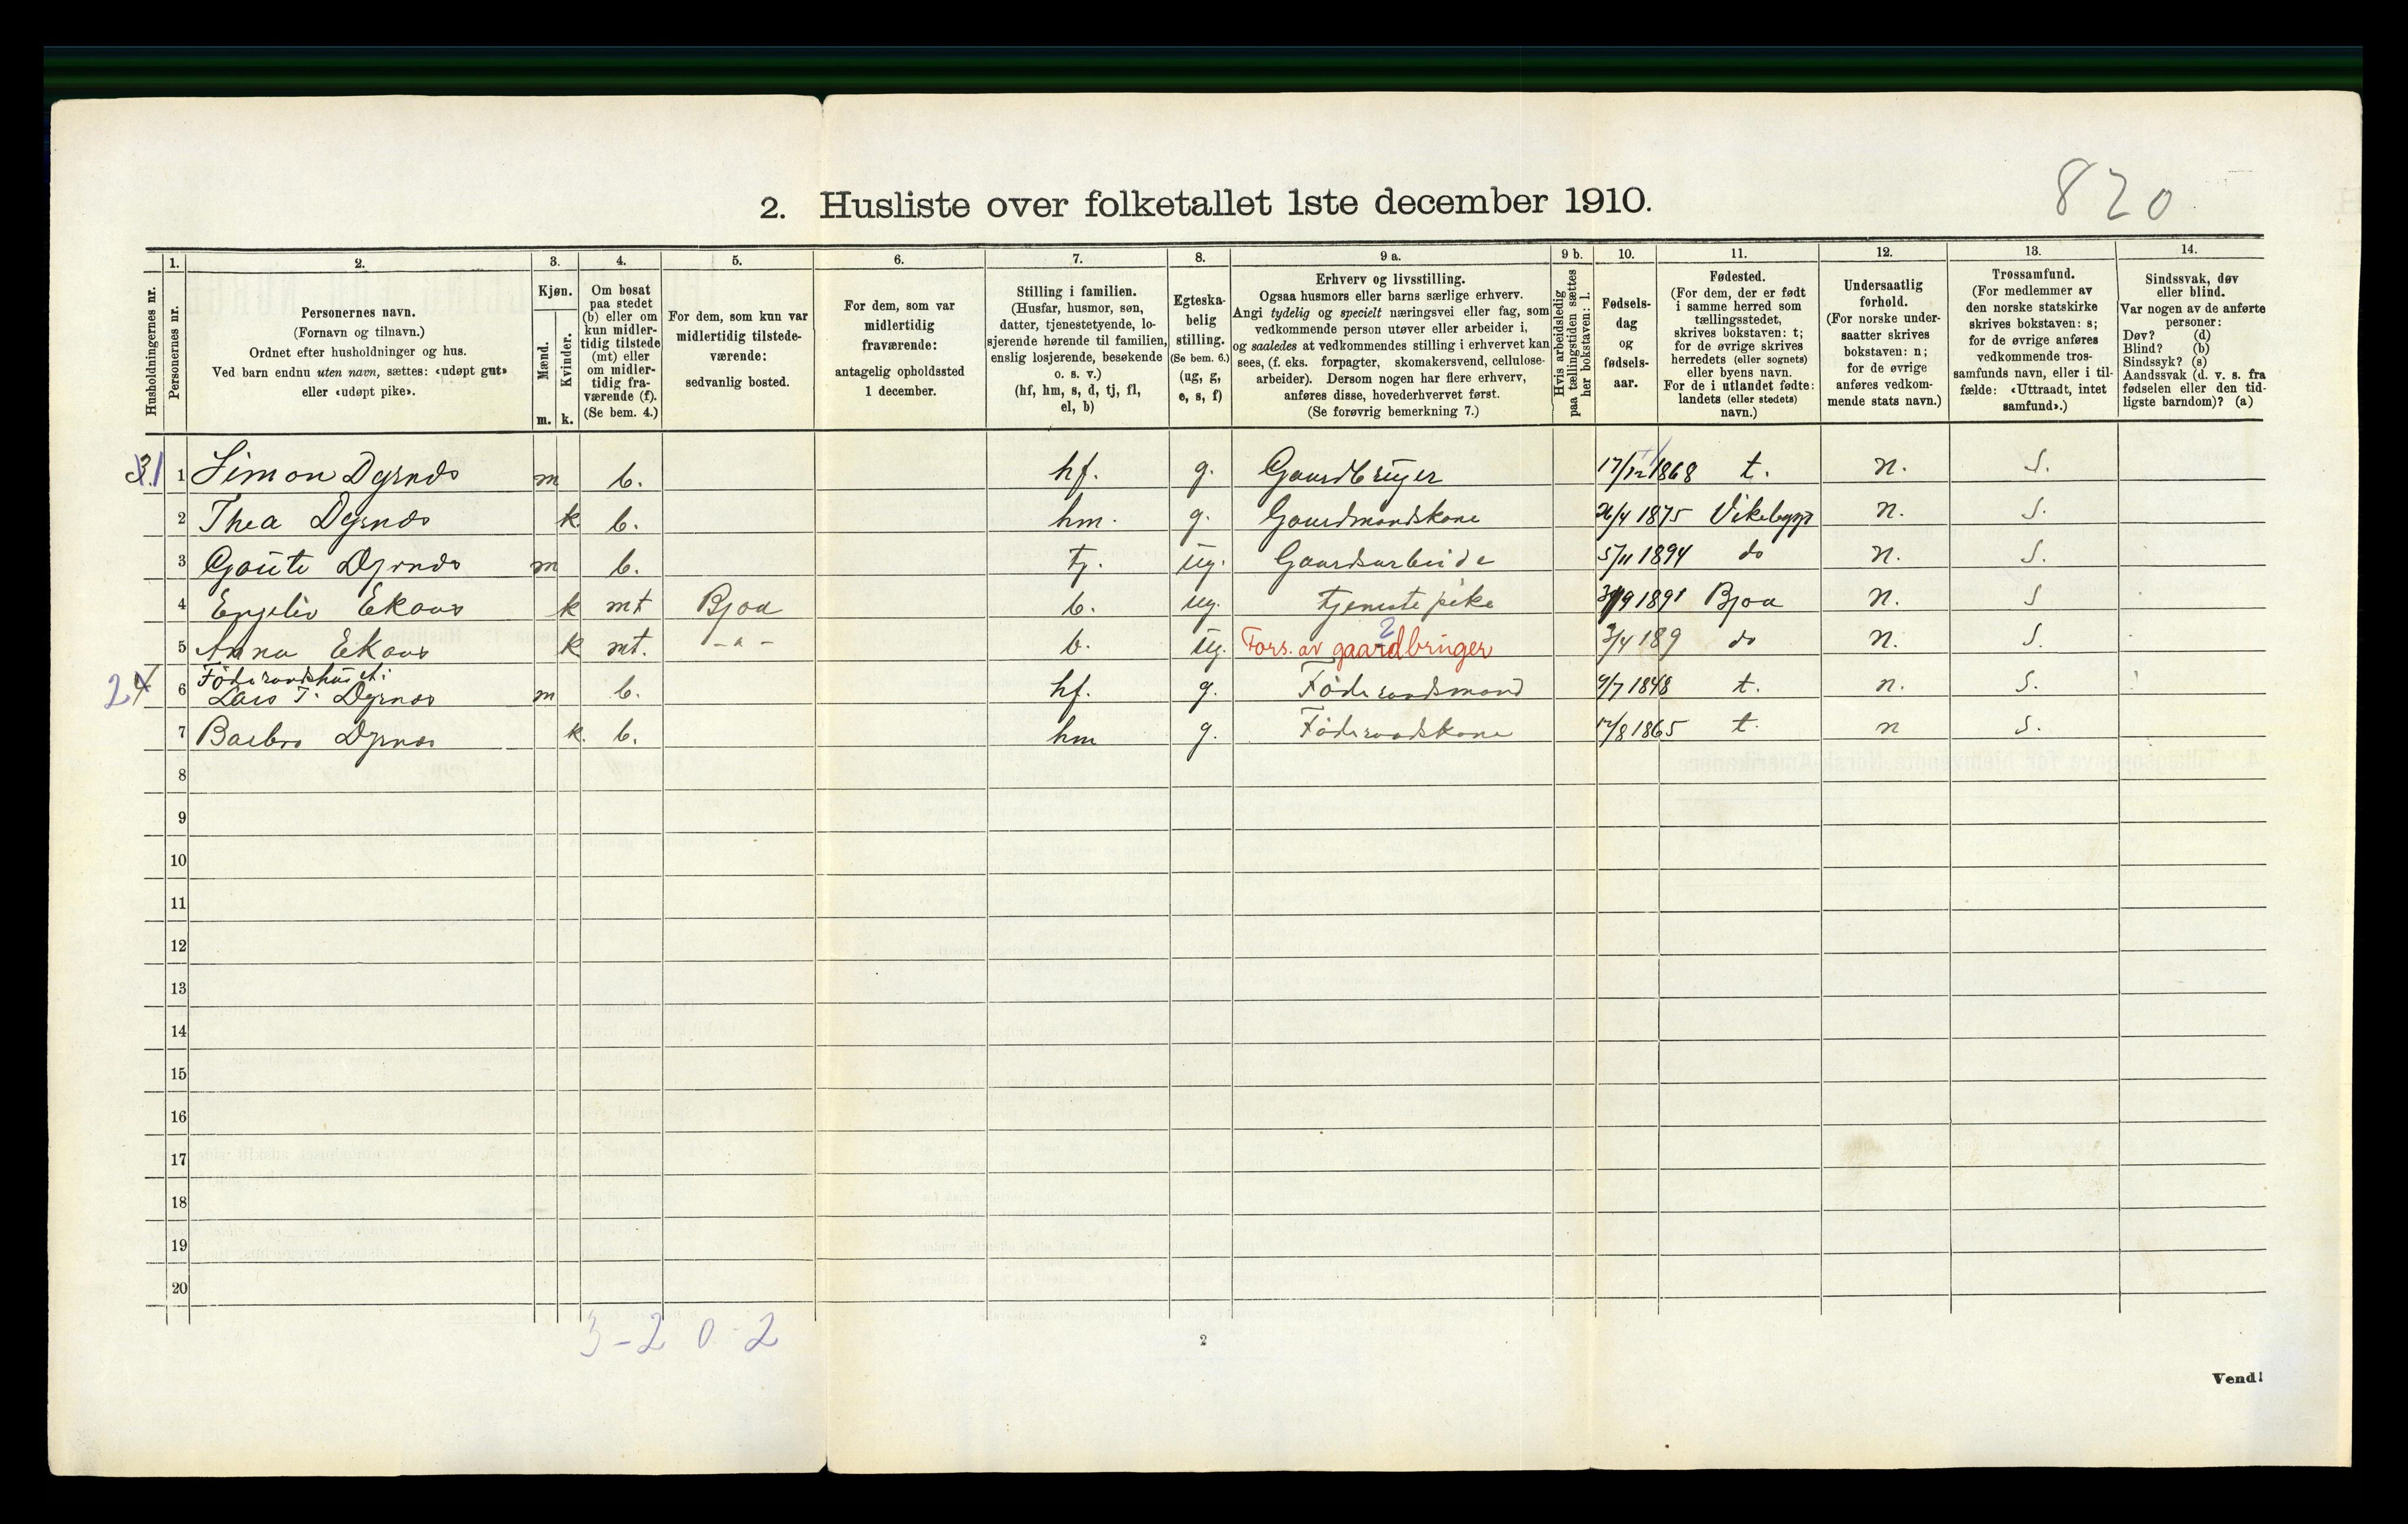 820
2. Husliste over folketallet 1ste december 1910.
1. 2. 3. 4. 5. 6. 7. 8. 9 a. 9 b. 10. 11. 12. 13. 14.
Husholdningernes nr.
Personernes nr.
Personernes navn.
(Fornavn og tilnavn.)
Ordnet efter husholdninger og hus.
Ved barn endnu uten navn, sættes: «udøpt gut»
eller «udøpt pike».
Kjøn.
Mænd.
Kvinder.
m. k.
Om bosat
paa stedet
(b) eller om
kun midler-
tidig tilstede
(mt) eller
om midler-
tidig fra-
værende (f).
(Se bem. 4.)
For dem, som kun var
midlertidig tilstede-
værende:
sedvanlig bosted.
For dem, som var
midlertidig
fraværende:
antagelig opholdssted
1 december.
Stilling i familien.
(Husfar, husmor, søn,
datter, tjenestetyende, lo-
sjerende hørende til familien,
enslig losjerende, besøkende
o. s. v.)
(hf, hm, s, d, tj, fl,
el, b)
Egteska-
belig
stilling.
(Se bem. 6.)
(ug, g,
e, s, f)
Erhverv og livsstilling.
Ogsaa husmors eller barns særlige erhverv.
Angi tydelig og specielt næringsvei eller fag, som
vedkommende person utøver eller arbeider i,
og saaledes at vedkommendes stilling i erhvervet kan
sees, (f. eks. forpagter, skomakersvend, cellulose-
arbeider). Dersom nogen har flere erhverv,
anføres disse, hovederhvervet først.
(Se forøvrig bemerkning 7.)
Hvis arbeidsledig
paa tællingstiden sættes
her bokstaven: l.
Fødsels-
dag
og
fødsels-
aar.
Fødested.
(For dem, der er født
i samme herred som
tællingsstedet,
skrives bokstaven: t;
for de øvrige skrives
herredets (eller sognets)
eller byens navn.
For de i utlandet fødte:
landets (eller stedets)
navn.)
Undersaatlig
forhold.
(For norske under-
saatter skrives
bokstaven: n;
for de øvrige
anføres vedkom-
mende stats navn.)
Trossamfund.
(For medlemmer av
den norske statskirke
skrives bokstaven: s;
for de øvrige anføres
vedkommende tros-
samfunds navn, eller i til-
fælde: «Uttraadt, intet
samfund».)
Sindssvak, døv
eller blind.
Var nogen av de anførte
personer:
Døv? (d)
Blind? (b)
Sindssyk? (s)
Aandssvak (d. v. s. fra
fødselen eller den tid-
ligste barndom)? (a)
1 Simon Dyrnæs m b. hf. g. Gaardbruger 17/12 1868 t. n. S.
2 Thea Dyrnæs k. b. hm. g. Gaardmandskone 26/4 1875 Vikebygd n. S.
3 Goute Dyrnæs m b. tj. ug. Gaardsarbeide 5/11 1894 do n. S.
4 Engeliv Ekaas k mt Bjoa b. ug. tjeneste pike 1891 Bjoa n. S
5 Anna Ekaas k mt. -a- b. ug. Fors. av gaardbruger 2 3/4 189 do n. S.
Føderaadshuset:
2 6 Lars T. Dyrnæs m b. hf. g. Føderaadsmand 9/7 1848 t. n. S.
7 Barbro Dyrnæs k. b. hm g. Føderaadskone 12/8 1865 t. n S.
8
9
10
11
12
13
14
15
16
17
18
19
20
3-2 0-2
2
Vend!